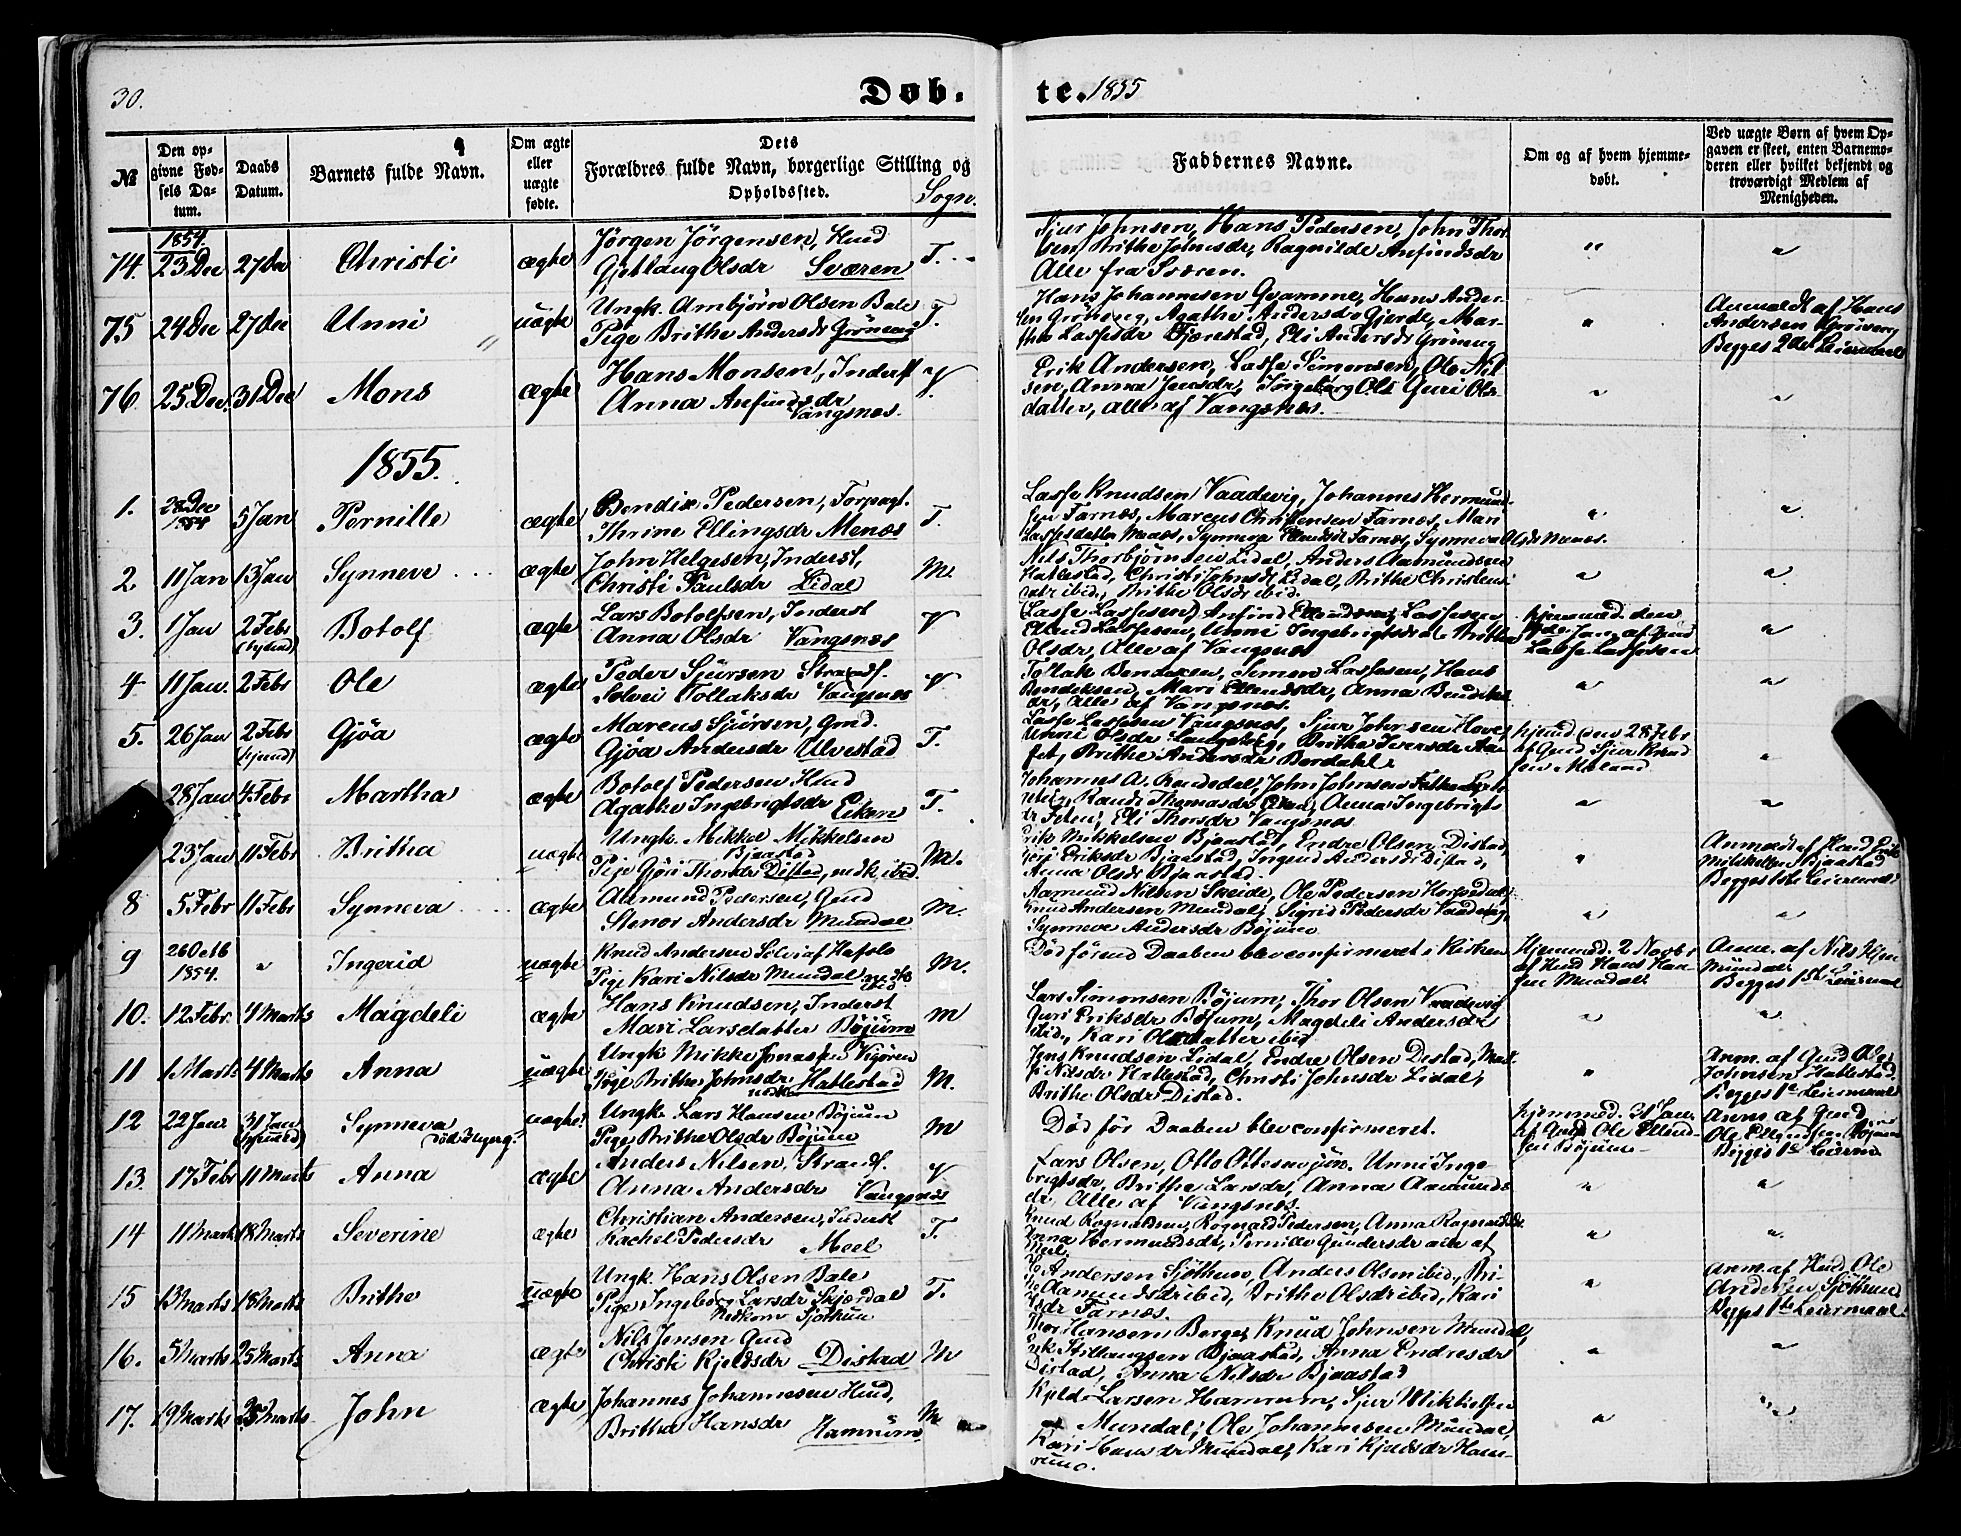 30.
Døb-
te. 1855
№
Den op-
givne Fød-
sels Da-
tum.
Daabs
Datum.
Barnets fulde Navn.
Om ægte
eller
uægte
fødte.
Dets
Forældres fulde Navn, borgerlige Stilling og
Opholdssted.
Sogn.
Faddernes Navne.
Om og af hvem hjemme-
døbt.
Ved uægte Børn af hvem Op-
gaven er skeet, enten Barnemo-
deren eller hvilket bekjendt og
troværdigt Medlem af
Menigheden.
1854.
74. 23 Dec 27 Dec Christi ægte
Jörgen Jörgensen, Husd
Gjetlaug Olsdr Sværen T.
Sjur Johnsen, Hans Pedersen, John Thor-
sen, Brithe Johnsdr, Ragnilde Anfindsdr
Alle fra Sværen.
75 24 Dec 27 Dec Unni uægte
Ungk. Arnbjørn Olsen Bale
Pige Brithe Andersdr Gröneng T.
Hans Johannesen Qvamme, Hans Ander-
sen Gröneng, Agathe Andersdr Gjerde, Mar-
tha Lassesdr Tjærestad, Eli Andersdr Gröneng
Anmeldt af Hans
Andersen Gröneng
Begges 2det Leiermaal
76. 25 Dec. 31 Dec Mons ægte
Hans Monsen, Inderst
Anna Anfindsdr
Vangsnes. V.
Erik Andersen, Lasse Simensen, Ole Nil-
sen, Anna Jensdr, Ingeborg Ols Guri Ols-
datter, Alle af Vangsnes.
1855.
1. 28 Dec
1854 5 Jan Pernille ægte
Bendix Pedersen, Forpagt.
Thrine Ellingsdr Menæs T.
Lasse Knudsen Vaadevig, Johannes Hermund-
sen Farnæs, Marcus Christensen Farnæs, Mari
Lassesdatter Menæs, Synneva Farnæs, Synneva Olsdr Menæs.
2. 11 Jan 13 Jan Synneve ægte
John Helgesen, Inderst,
Christi Paulsdr Lidal M.
Nils Thorbjörnsen Lidal, Anders Aamundsen
Hatlestad, Christi Johnsdr Lidal, Brithe Christens-
datr ibid, Brithe Olsdr ibid.
3. 1 Jan 2 Febr Botolf ægte
Lars Botolfsen, Inderst
Anna Olsdr Vangsnæs V
Lasse Lassesen, Anfind Ellendsen, Lassesen
Ellend Lassesen, Unni Ingebrigtsdr, Brithe
Olsdr, Alle af Vangsnæs
Jan. af Gmd
Lasse Lassesen
4 11 Jan. 2 Febr Ole ægte
Peder Sjursen Strands.
Solvei Tollaksdr Vangsnes V.
Tollak Bendixen, Simon Lassesen, Hans
Bendiksen, Mari Ellendsdr, Anna Bendiks-
dr, Alle af Vangsnes.
5. 26 Jan 2 Febr Gjöa ægte
Marcus Sjursen, Gmd.
Gjöa Andersdr Ulvestad T.
Lasse Lassesen Vangsnes, Sjur Johnsen Hove,
Unni Olsdr, Brithe Iversdr
Brithe Andersdr Bordahl.
28 Febr
af Gmd Sjur Knud-
sen Meland
28 Jan 4 Febr Martha ægte
Botolf Pedersen Husd
Agathe Ingebrigtsdr Eiken T.
Johannes A. John Johnsen
Randi Thomasdr Eken, Anna Ingebrigts-
dr Feten, Eli Thorsdr Vangsnes.
23 Jan 11 Febr Britha uægte
Ungk. Mikkel Mikkelsen
Bjaastad
Pige Göri Thorsdr Distad, nedk. ibid. M.
Erik Mikkelsen Bjaastad, Endre Olsen Distad,
Eriksdr Bjaastad, Ingerid Andersdr Distad,
Anna Olsdr Bjaastad.
Anmældt af Husd Erik
Mikkelsen Bjaastad
Begges 1ste Leiermaal
8 5 Febr 11 Febr Synneva ægte
Aamund Pedersen, Gmd
Stenor Andersdr Mundal M.
Aamund Nilsen Skeide, Ole Pedersen
Knud Andersen Mundal, Sigrid Pedersdr Vaadevig,
Synneve Andersdr Böjum
9 26 Octb
1854. Ingerid uægte
Knud Andersen Sölvi af Hafslo
Pige Kari Nilsdr Mundal M.
Död förend Daaben blev confirmeret i Kirken
Hjemmed. 2 Novbr
af Husd Hans Han-
sen Mundal
Anm. af Nils
Mundal
Begges 1ste Leiermaal
10. 12 Febr. 4 Marts Magdeli ægte
Hans Knudsen, Inderst
Mari Larsdatter Böjum M
Lars Simonsen Böjum, Thor Olsen Vaadevig
Guri Eriksdr Böjum, Magdeli Andersdr
ibid, Kari Olsdatter ibid
11 1 Marts 4 Marts Anna uægte
Ungk Mikkel Jonassen Vigören
Pige Brithe Johnsdr Hatlestad M.
Jens Knudsen Lidal, Endre Olsen Distad,
Nilsdr Hatlestad, Christi Johnsdr Lidal,
Brithe Olsdr Distad.
Anm. af Gmd Ole
Johnsen Hatlestad.
Begges 1ste Leiermaal
12 22 Jan 31 Jan Synneva uægte
Ungk. Lars Hansen Böjum
Pige Brithe Olsdr Böjum M
Död för Daaben blev confirmeret.
Hjemmed. 31 Jan.
af Gmd Ole Ellend-
sen Böjum
Anm. af Gmd
Ole Ellendsen Böjum
Begges 1ste Leierm
13. 17 Febr 11 Marts Anna ægte
Anders Nilsen, Strands.
Anna Andersdr Vangsnes V
Lars Olsen, Otto Ottesen jun. Unni Inge-
brigtsdr, Brithe Larsdr, Anna Aamunds-
dr, Alle af Vangsnes.
14 11 Marts 18 Marts Severine ægte
Christian Andersen, Inderst
Rachel Pedersdr Meel T.
Knud Rognaldsen, Rognald Pedersen, Anna Rognaldsdr
Anna Hermundsdr, Pernille Gundersdr alle af
Meel.
15 13 Marts 18 Marts Brithe uægte
Ungk. Hans Olsen Bale
Pige Ingeborg Larsdr Skjærdal
Nedkom Sjöthun T.
Andersen Sjöthun, Anders Olsen ibid, Bri-
the Aamundsdr ibid, Brithe Olsdr ibid, Kari
Farnæs.
Anm. af Husd Ole
Andersen Sjöthun
Begges 1ste Leiermaal
16. 5 Marts 25 Marts Anna ægte
Nils Jensen Gmd
Christi Kjeldsdr Distad M
Thor Hansen Berge, Knud Johnsen Mundal,
Erik Stillaugsen Bjaastad, Anna Endresdr
Distad, Anna Nilsdr Bjaastad
17. 19 Marts 25 Marts John ægte
Johannes Johannesen Husd,
Britha Hansdr Hamrum M
Kjeld Larsen Hamrum, Sjur Mikkelsen
Mundal, Ole Johannesen Mundal,
Kari Hansdr Mundal, Kari Kjeldsdr Ham-
rum.